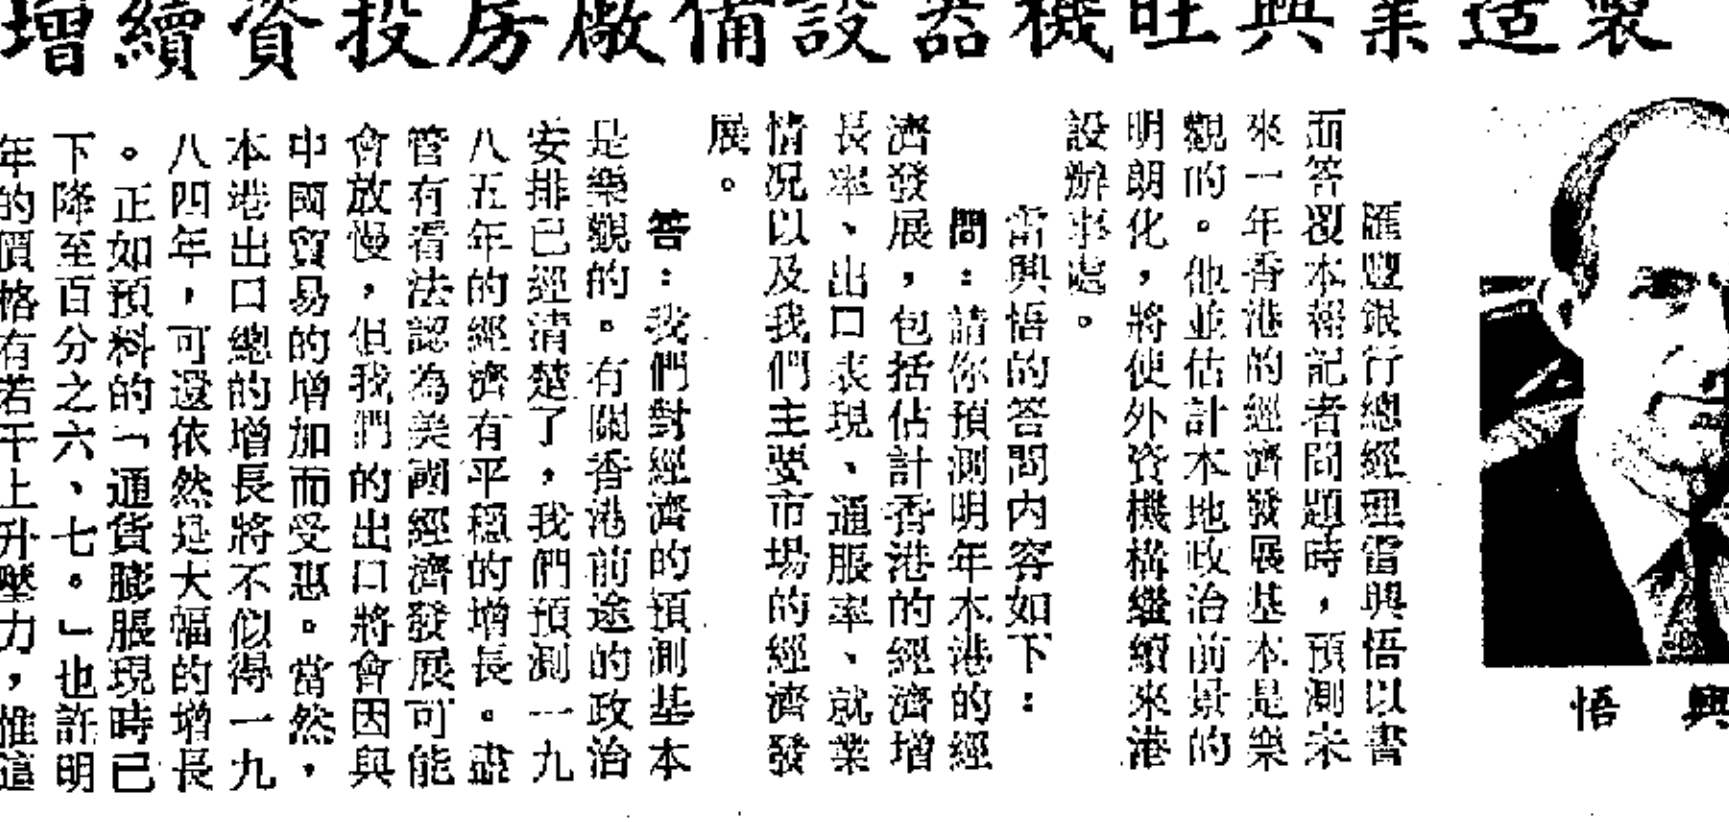 製造業興旺機器設備廠房投資續增
興悟
匯豐銀行總經理雷興悟以書
面答覆本報記者問題時，預測未
來一年香港的經濟發展基本是樂
觀的。他並估計本地政治前景的
明朗化，將使外資機構繼續來港
設辦事處。
雷興悟的答問內容如下：
問：請你預測明年本港的經
濟發展，包括估計香港的經濟增
長率、出口表現、通脹率、就業
情况以及我們主要市場的經濟發
展。
答：我們對經濟的預測基本
是樂觀的。有關香港前途的政治
安排已經清楚了，我們預測一九
八五年的經濟有平穩的增長。儘
管有看法認為美國經濟發展可能
會放慢，但我們的出口將會因與
中國貿易的增加而受惠。當然，
本港出口總的增長將不似得一九
八四年，可還依然是大幅的增長
。正如預料的「通貨膨脹現時已
下降至百分之六、七。」也許明
年的價格有若干上升壓力，惟這